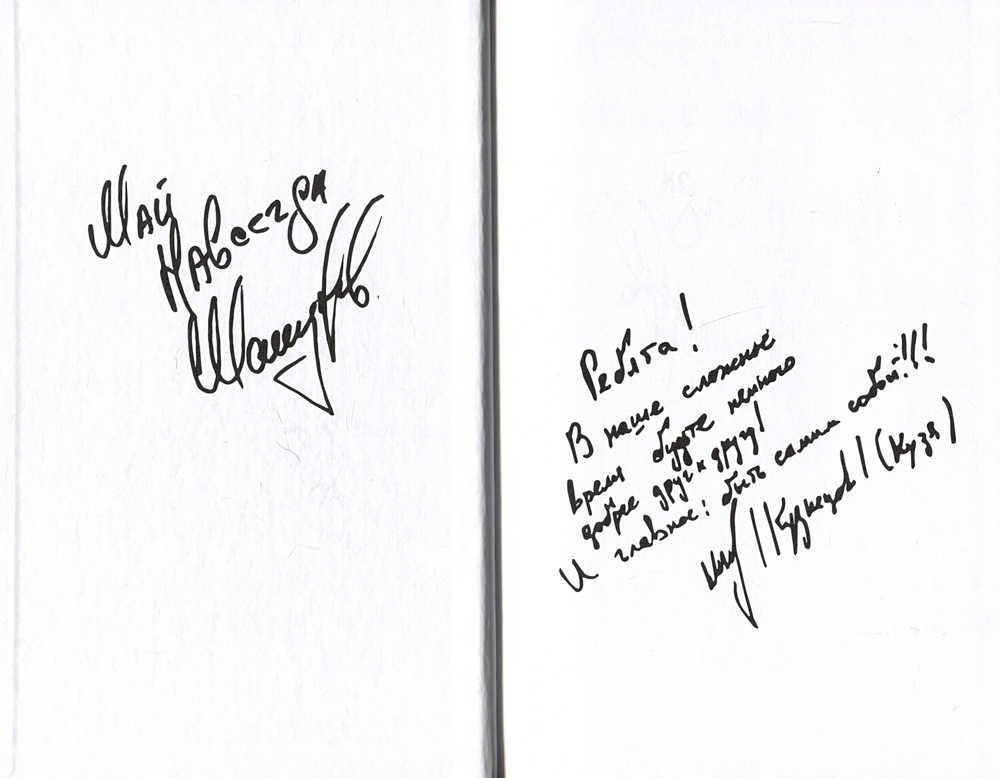 Май
навсегда
Ребята!
В наше сложное
время будьте немного
добрее друг к другу!
И главное: быть самим собой!!!
/Кузнецов/ (Кузя)